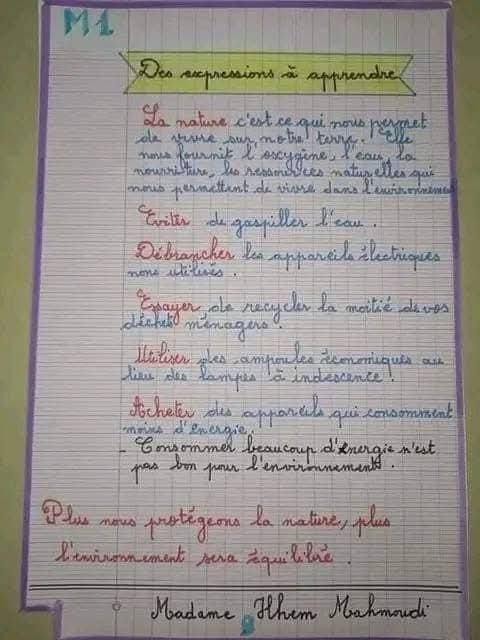 M1
Des expressions à apprendre
La nature c'est ce qui nous permet
de vivre sur notre terre. Elle
nous fournit l'oxygène, l'eau, la
nourriture, les ressources naturelles qui
nous permettent de vivre dans l'environnement
Eviter de gaspiller l'eau.
Débrancher les appareils électriques
nons utilisés.
Essayer de recycler la moitié de vos
déchets ménagers.
Utiliser des ampoules économiques au
lieu des lampes à indescence.
Acheter des appareils qui consomment
moins d'énergie.
- Consommer beaucoup d'énergie n'est
pas bon pour l'environnement.
Plus nous protégeons la nature, plus
l'environnement sera équilibré.
Madame Ilhem Mahmoudi
9